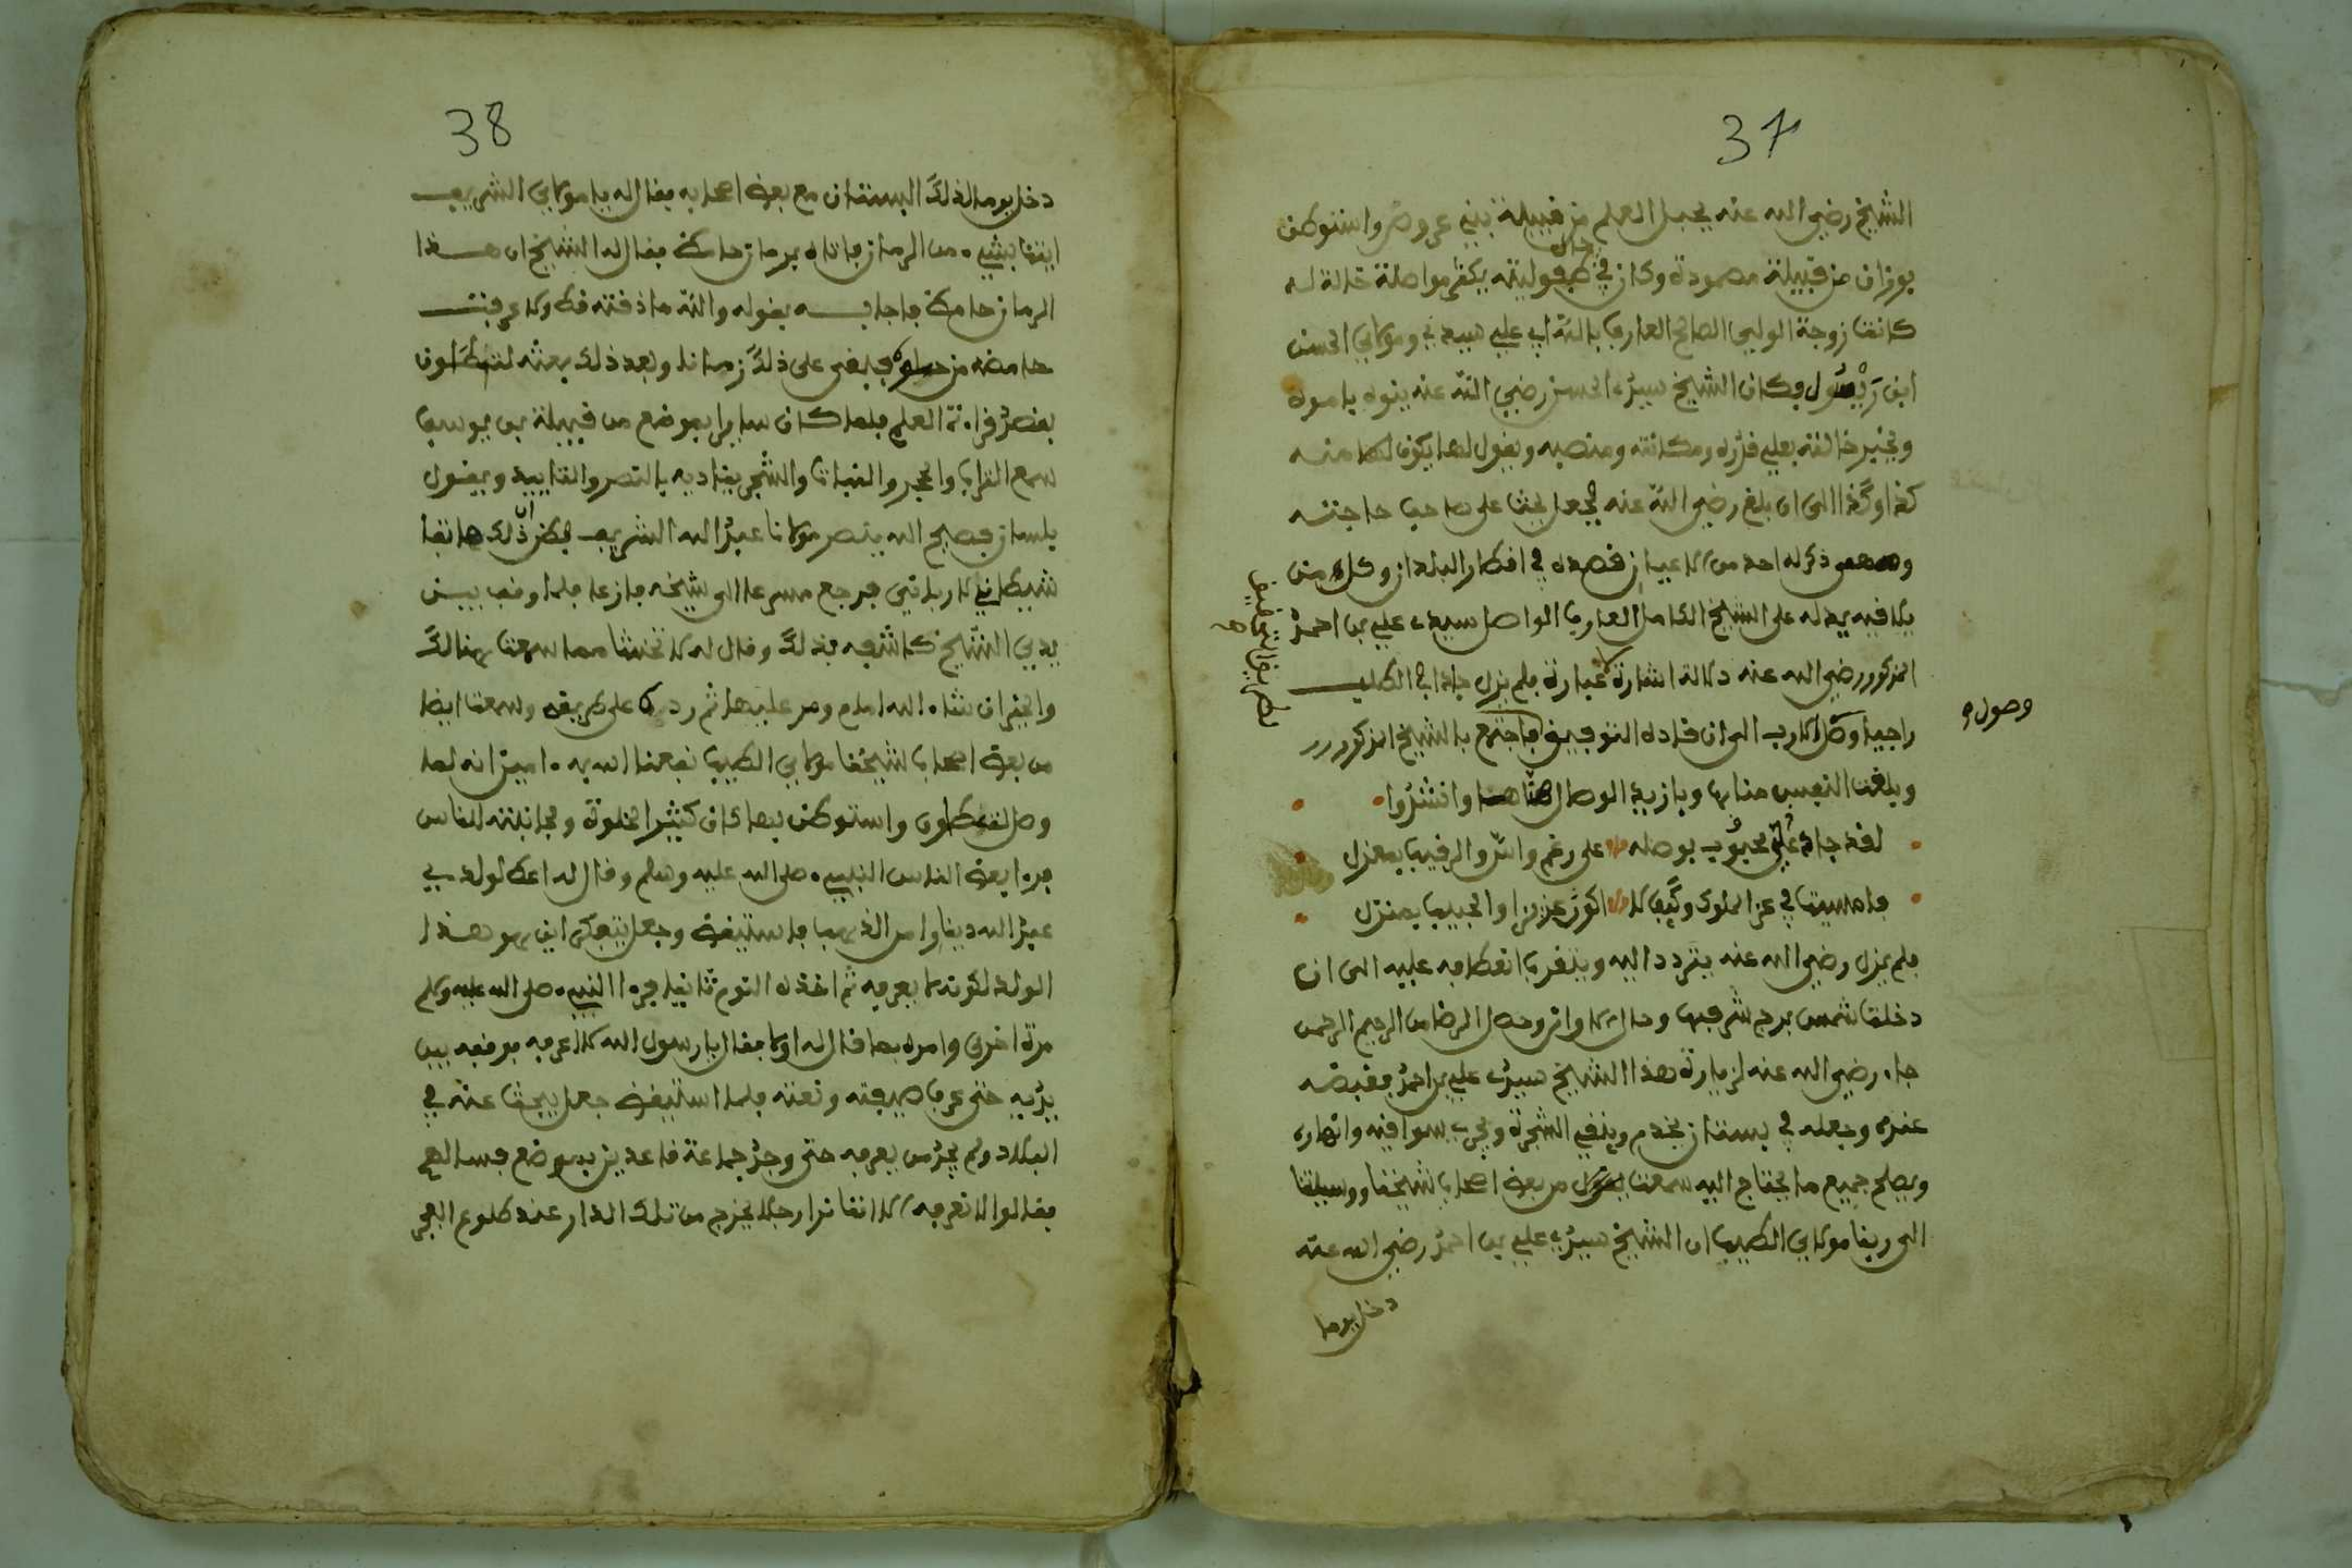 37
الشيخ رضي الله عنه بجبل العلم من قبيلة بني عروص واستوطن
بوزان من قبيلة مصمودة وكان في حال طفوليته يكثر مواصلة خالة له
كانت زوجة الولي الصالح العارف بالله ابي علي سيدي ومولاي الحسن
ابن ريسول وكان الشيخ سيدي الحسن رضي الله عنه ينوه بامره
ويخبر خالته بعلي قدره ومكانته ومنصبه ويقول لها يكون لها منه
كذا وكذا الى ان بلغ رضي الله عنه فجعل يبحث على صاحب حاجته
ذكر له احد من الاعيان قصده في اقطار البلدان وكل من
يلاقيه يدله على الشيخ الكامل العارف الواصل سيدي علي بن احمد
المذكور رضي الله عنه دلالة اشارة لا عبارة فلم يزل جادا في الطلب
راجيا وصول الارب الى ان قاده التوفيق فاجتمع بالشيخ المذكور
وصوله
وبلغت النفس مناها وبازية الوصال وانشدوا
لقد جاد لي محبوب بوصله على رغم واش والرقيب بمعزل
فامسيت في عز الملوك وكيف لا اكون عزيزا والحبيب بمنزل
فلم يزل رضي الله عنه يتردد اليه ويتقرب انعطافه عليه الى ان
دخلت شمس برج شرفها وحان الاوان وحصل الرضا من الرحيم الرحمن
جاء رضي الله عنه لزيارة هذا الشيخ سيدي علي بن احمد فقبضه
عنده وجعله في بستان يخدم وينقي الشجرة ويجري سواقيه وانهاره
ويصلح جميع ما يحتاج اليه سمعت من بعض اصحاب شيخنا ووسيلتنا
الى ربنا مولاي الطيب ان الشيخ سيدي علي بن احمد رضي الله عنه
دخل يوما
38
دخل يوما لذلك البستان مع بعض اصحابه فقال له يا مولاي الشريف
ايتنا بشيء من الرمان فاتاه برمان حامض فقال له الشيخ ان هذا
الرمان حامض فاجابه بقوله والله ما ذقته قط ولا عرفت
حامضه من حلوه فبقي على ذلك زمانا وبعد ذلك بعثه لتطاون
بقصد قراءة العلم فلما كان سايرا بموضع من قبيلة بني يوسف
سمع التراب والحجر والنبات والشجر يناديه بالنصر والتاييد ويقول
بلسان فصيح الله ينصر مولانا عبد الله الشريف فظن ان ذلك هاتفا
شيطاني لا رباني فرجع مسرعا الى شيخه فازعا فلما وقف بين
يدي الشيخ كاشفه بذلك وقال له لا تخش مما سمعت هنالك
والخير ان شاء الله امام ومر عليها ثم رده على طريقه وسمعت ايضا
من بعض اصحاب شيخنا مولاي الطيب نفعنا الله به ءامين انه لما
وصل لتطاون واستوطن بها كان كثير الخلوة ومجانبته للناس
فرءا بعض الناس النبيء صلى الله عليه وسلم وقال له اعط لولدي
عبد الله دينارا من الذهب فاستيقظ وجعل يتفكر اين هو هذا
الولد لكونه لم يعرفه ثم اخذه النوم ثانيا فرءا النبيء صلى الله عليه وسلم
مرة اخرى وامره بما قال له اولا فقال يا رسول الله لا اعرفه فرفعه بين
يديه حتى عرف صفته ونعته فلما استيقظ جعل يبحث عنه في
البلاد ولم يجد من يعرفه حتى وجد جماعة قاعدين بموضع فسالهم
فقالوا لا نعرفه الا اننا نرا رجلا يخرج من تلك الدار عند طلوع الفجر